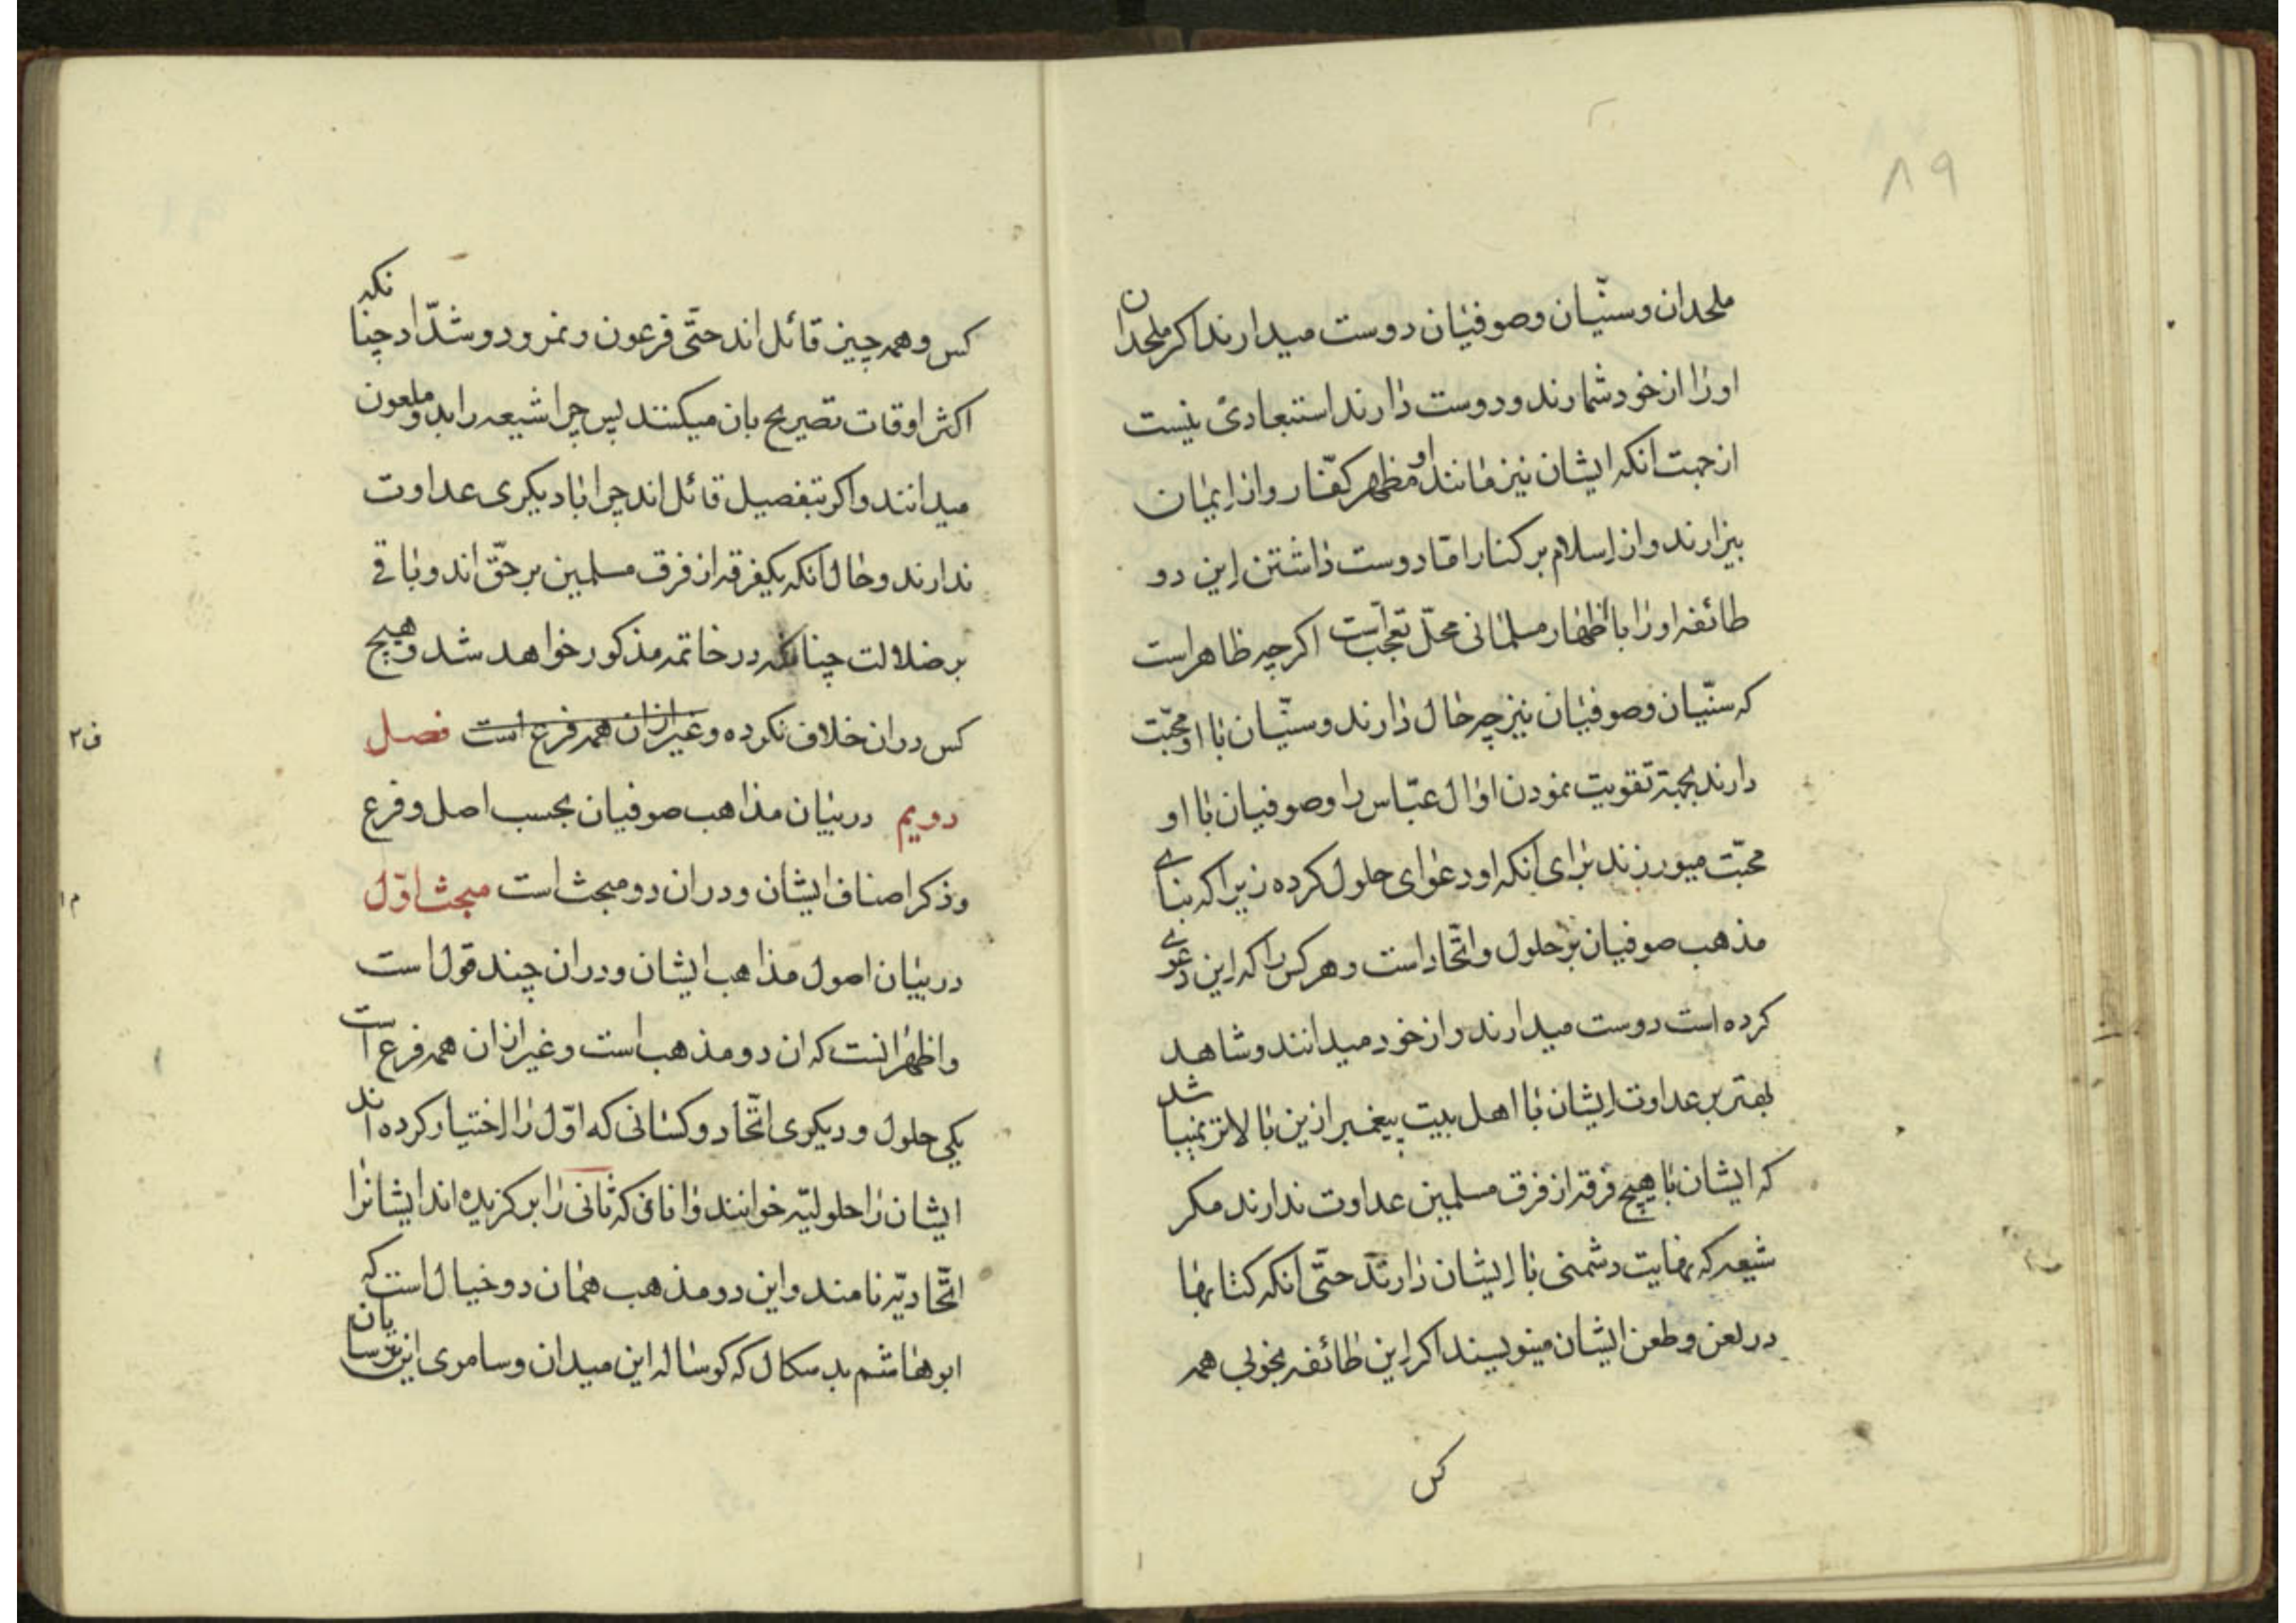 ۸۹
ملحدان و سنّیان و صوفیان دوست میدارند اکر ملحدان
اورا از خود شمارند و دوست دارند استبعادی نیست
از جهت انکه ایشان نیز مانند او مظهر کفّار و از ایمان
بیزارند و از اسلام بر کنار امّا دوست داشتن این دو
طائفه اورا با اظهار مسلمانی محلّ تعجّب است اکرچه ظاهر است
که سنّیان و صوفیان نیز چه حال دارند و سنّیان با او محبّت
دارند بجهة تقویت نمودن او ال عبّاس را و صوفیان با او
محبّت میورزند برای انکه او دعوای حلول کرده زیرا که بنای
مذهب صوفیان بر حلول و اتّحاد است و هر کس را که این دعوی
کرده است دوست میدارند و از خود میدانند و شاهد
بهتر بر عداوت ایشان با اهل بیت پیغمبر ازین بالاتر نمیباشد
که ایشان با هیچ فرقه از فرق مسلمین عداوت ندارند مکر
شیعه که نهایت دشمنی با ایشان دارند حتّی انکه کتابها
در لعن و طعن ایشان مینویسند اکر این طائفه بخوبی همه
کس
کس و همه چیز قائل اند حتّی فرعون و نمرود و شدّاد چنانکه
اکثر اوقات تصریح بان میکنند پس چرا شیعه را بد و ملعون
میدانند و اکر بتفصیل قائل اند چرا با دیکری عداوت
ندارند و حال انکه یکفرقه از فرق مسلمین بر حقّ اند و باقی
بر ضلالت چنانکه در خاتمه مذکور خواهد شد و هیچ
کس در ان خلاف نکرده و غیر از ان همه فرع است فصل
ف۲
دویم در بیان مذاهب صوفیان بحسب اصل و فرع
و ذکر اصناف ایشان و در ان دو مبحث است مبحث اوّل
م۱
در بیان اصول مذاهب ایشان و در ان چند قول است
و اظهر انست که ان دو مذهب است و غیر از ان همه فرع است
یکی حلول و دیکری اتّحاد و کسانی که اوّل را اختیار کرده اند
ایشان را حلولیّه خوانند و انانی که ثانی را بر کزیده اند ایشانرا
اتّحادیّه نامند و این دو مذهب همان دو خیال است که
ابو هاشم بد سکال که کوساله این میدان و سامری این ترسایان